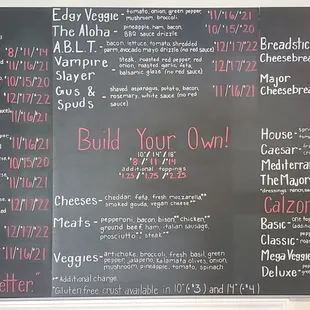 Edgy Veggie - tomato, onion, green pepper, mushroom, broccoli 11/16/21
The Aloha - pineapple, ham, bacon, BBQ sauce drizzle 10/15/20
A.B.L.T. - bacon, lettuce, tomato, shredded parm, avocado mayo drizzle (no red sauce) 12/17/22
Vampire Slayer - steak, roasted red pepper, red onion, roasted garlic, feta, balsamic glaze (no red sauce) 12/17/22
Gus & Spuds - shaved asparagus, potato, bacon, rosemary, white sauce (no red sauce) 11/16/21
Build Your Own!
10" / 14" / 18"
8 / 11 / 14
additional toppings
1.25 / 1.75 / 2.25
Cheeses - cheddar, feta, fresh mozzarella,**
smoked gouda, vegan cheese**
Meats - pepperoni, bacon, bison,** chicken,**
ground beef, ham, italian sausage,
prosciutto,** steak**
Veggies - artichoke, broccoli, fresh basil, green
pepper, jalapeño, kalamata olives, onion,
mushroom, pineapple, tomato, spinach
**Additional charge.
*Gluten free crust available in 10" (+$3) and 14" (+$4)
8/11/14
11/16/21
10/15/20
12/17/22
11/16/21
11/16/21
10/15/20
11/16/21
12/17/22
12/17/22
11/16/21
etter."
Breadstic
Cheesebrea
Major
Cheesebrea
House -
Caesar -
Mediterran
The Major
Calzon
Basic -
Classic -
Mega Veggie
Deluxe -